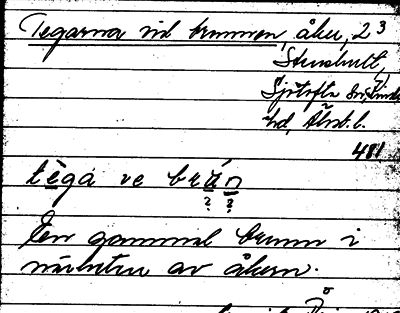 Tegarna vid brunnen åker, 23
Stenshult,
Sjötofta sn, Kinds
hd, Älvsb. l.
481
tèga ve brán
? ?
En gammal brunn i
närheten av åkern.